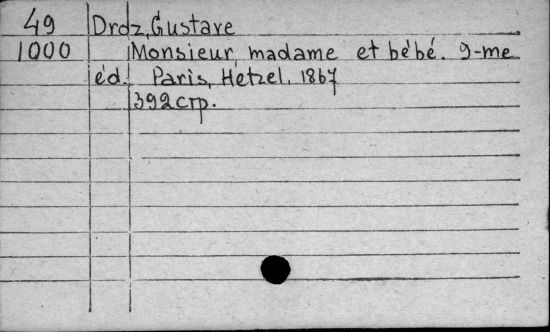 49 Droz, Gustave
1000 Monsieur, madame et bébé. 9-me
éd. Paris, Hetzel, 1867
392 стр.